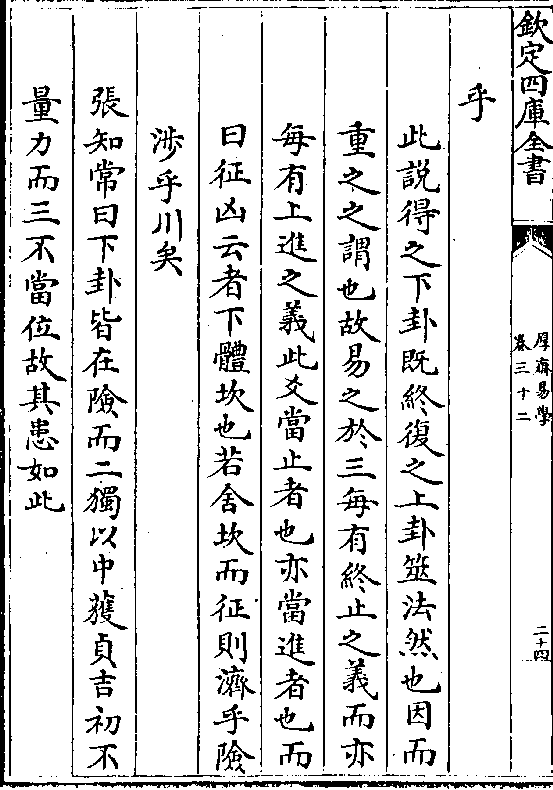 欽定四庫全書
厚齋易學
卷三十二
二十四
乎
此說得之下卦既終復之上卦筮法然也因而
重之之謂也故易之於三每有終止之義而亦
每有上進之義此爻當止者也亦當進者也而
曰征凶云者下體坎也若舍坎而征則濟乎險
涉乎川矣
張知常曰下卦皆在險而二獨以中獲貞吉初不
量力而三不當位故其患如此